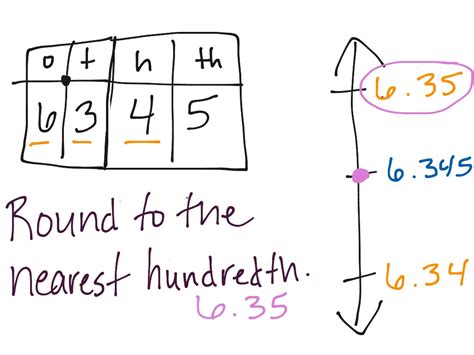 o t h th
6 3 4 5
6.35
6.345
6.34
Round to the
nearest hundredth.
6.35